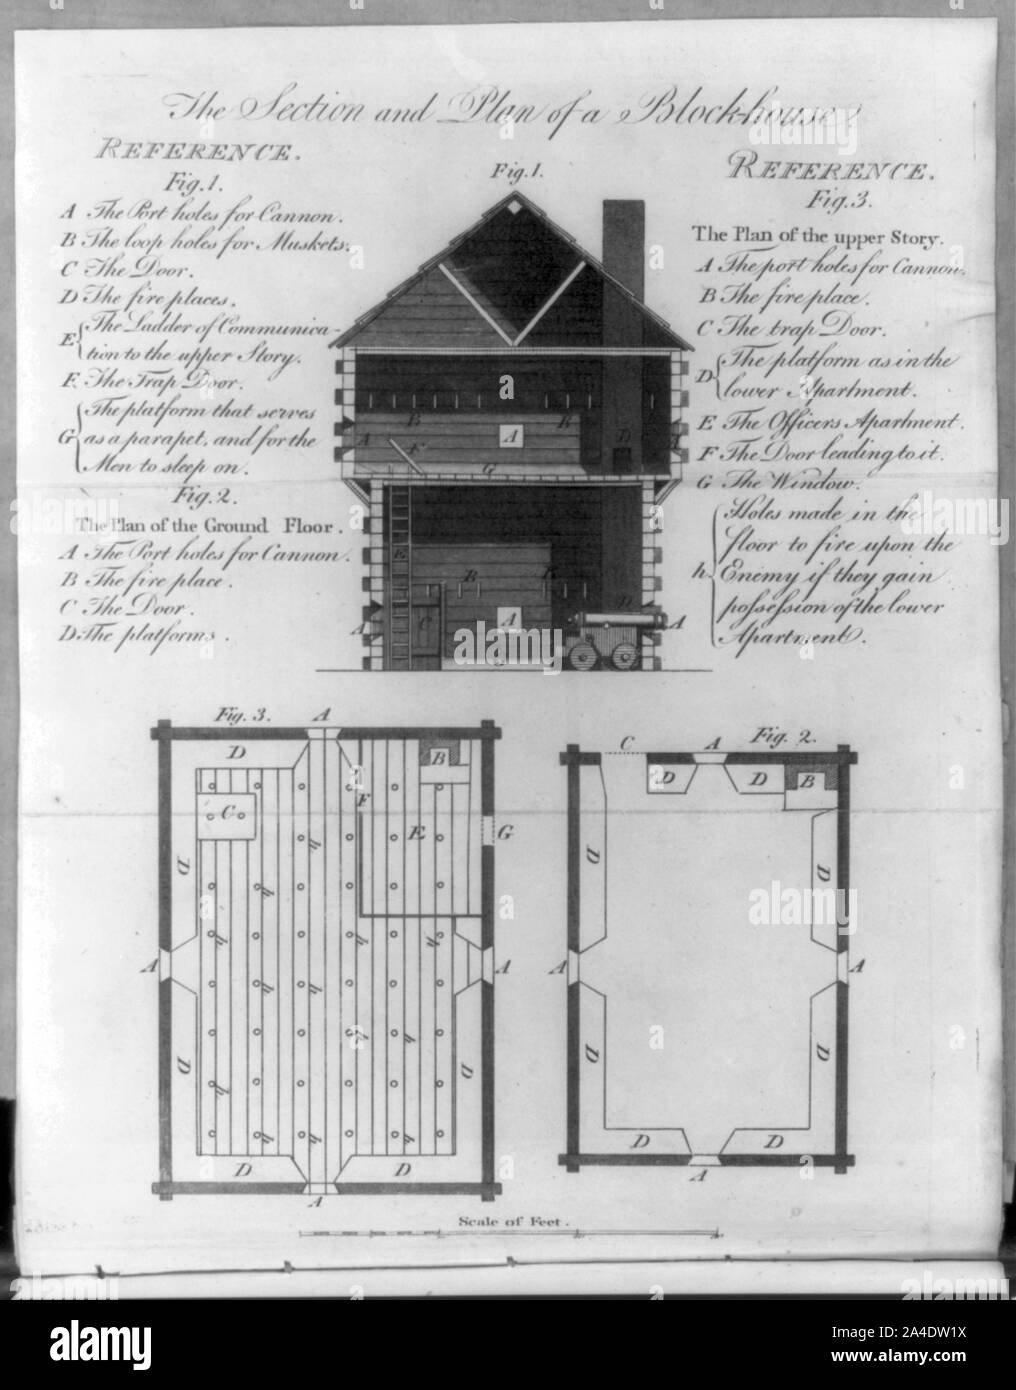 The Section and Plan of a Block-house.
REFERENCE.
Fig. 1.
A The Port holes for Cannon.
B The loop holes for Muskets.
C The Door.
D The fire places.
E The Ladder of Communica-
tion to the upper Story.
F. The Trap Door.
G The platform that serves
as a parapet, and for the
Men to sleep on.
Fig. 2.
The Plan of the Ground Floor.
A The Port holes for Cannon.
B The fire place.
C The Door.
D. The platforms.
Fig. 1.
B
B
A
A
F
G
D
B
A
E
B
B
D
A
C
A
A
REFERENCE.
Fig. 3.
The Plan of the upper Story.
A The port holes for Cannon.
B The fire place.
C The trap Door.
D The platform as in the
lower Apartment.
E The Officers Apartment.
F The Door leading to it.
G The Window.
h Holes made in the
floor to fire upon the
Enemy if they gain
possession of the lower
Apartment.
Fig. 3.
A
D
B
C
F
E
G
h
D
h
h
h
h
A
A
h
h
h
h
D
D
h
h
h
h
D
D
A
Fig. 2.
C
A
D
D
B
D
D
A
A
D
D
D
D
A
Scale of Feet.
alamy
alamy
Image ID: A44DW1X
www.alamy.com